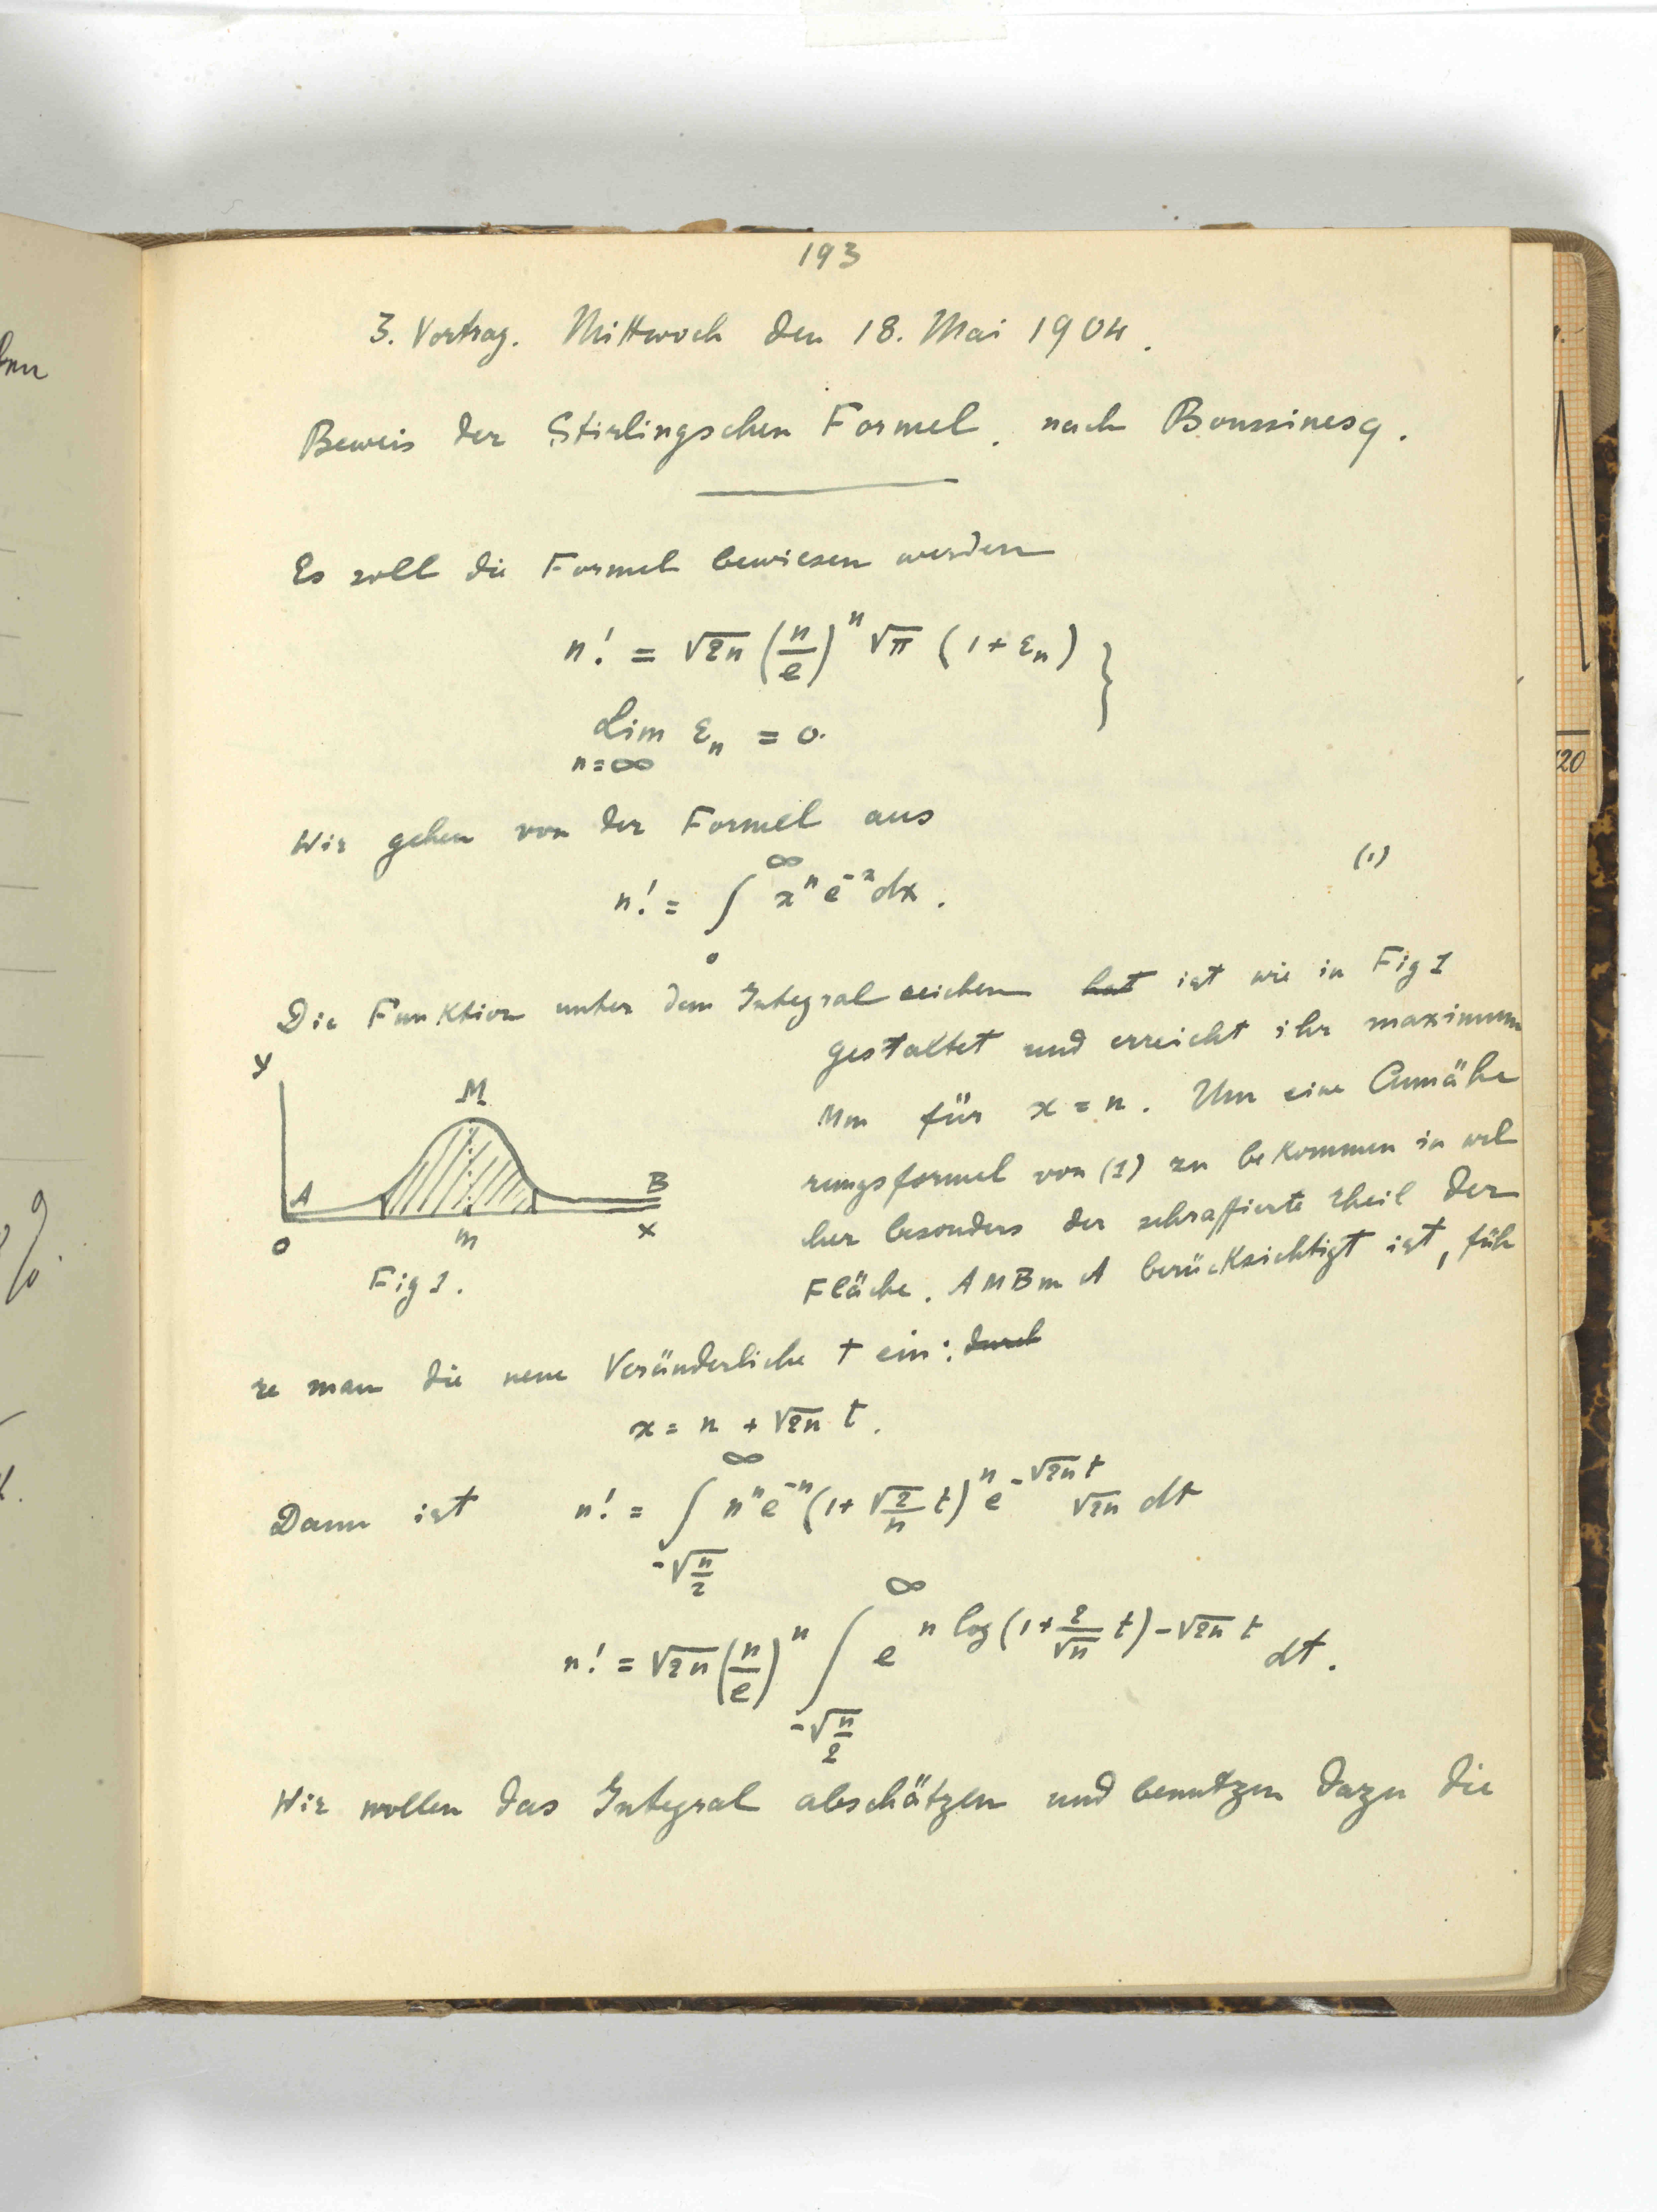 193
3. Vortrag. Mittwoch den 18. Mai 1904.
Beweis der Stirlingschen Formel. nach Boussinesq.
Es soll die Formel bewiesen werden
n! = √2n (n/e)^n √π (1 + ε_n) }
Lim ε_n = 0.
n = ∞
Wir gehen von der Formel aus
n! = ∫_0^∞ x^n e^{-x} dx. (1)
Die Funktion unter dem Integralzeichen hat ist wie in Fig 1
gestaltet und erreicht ihr maximum
Mm für x = n. Um eine Annähe
rungsformel von (1) zu bekommen in wel
cher besonders der schraffierte Theil der
Fläche. AMBmA berücksichtigt ist, füh
y
M
A
B
o
m
x
Fig 1.
re man die neue Veränderliche t ein: durch
x = n + √2n t.
Dann ist n! = ∫_{-√(n/2)}^∞ n^n e^{-n} (1 + √(2/n) t)^n e^{-√2n t} √2n dt
n! = √2n (n/e)^n ∫_{-√(n/2)}^∞ e^{n log(1 + 2/√n t) - √2n t} dt.
Wir wollen das Integral abschätzen und benutzen dazu die
20